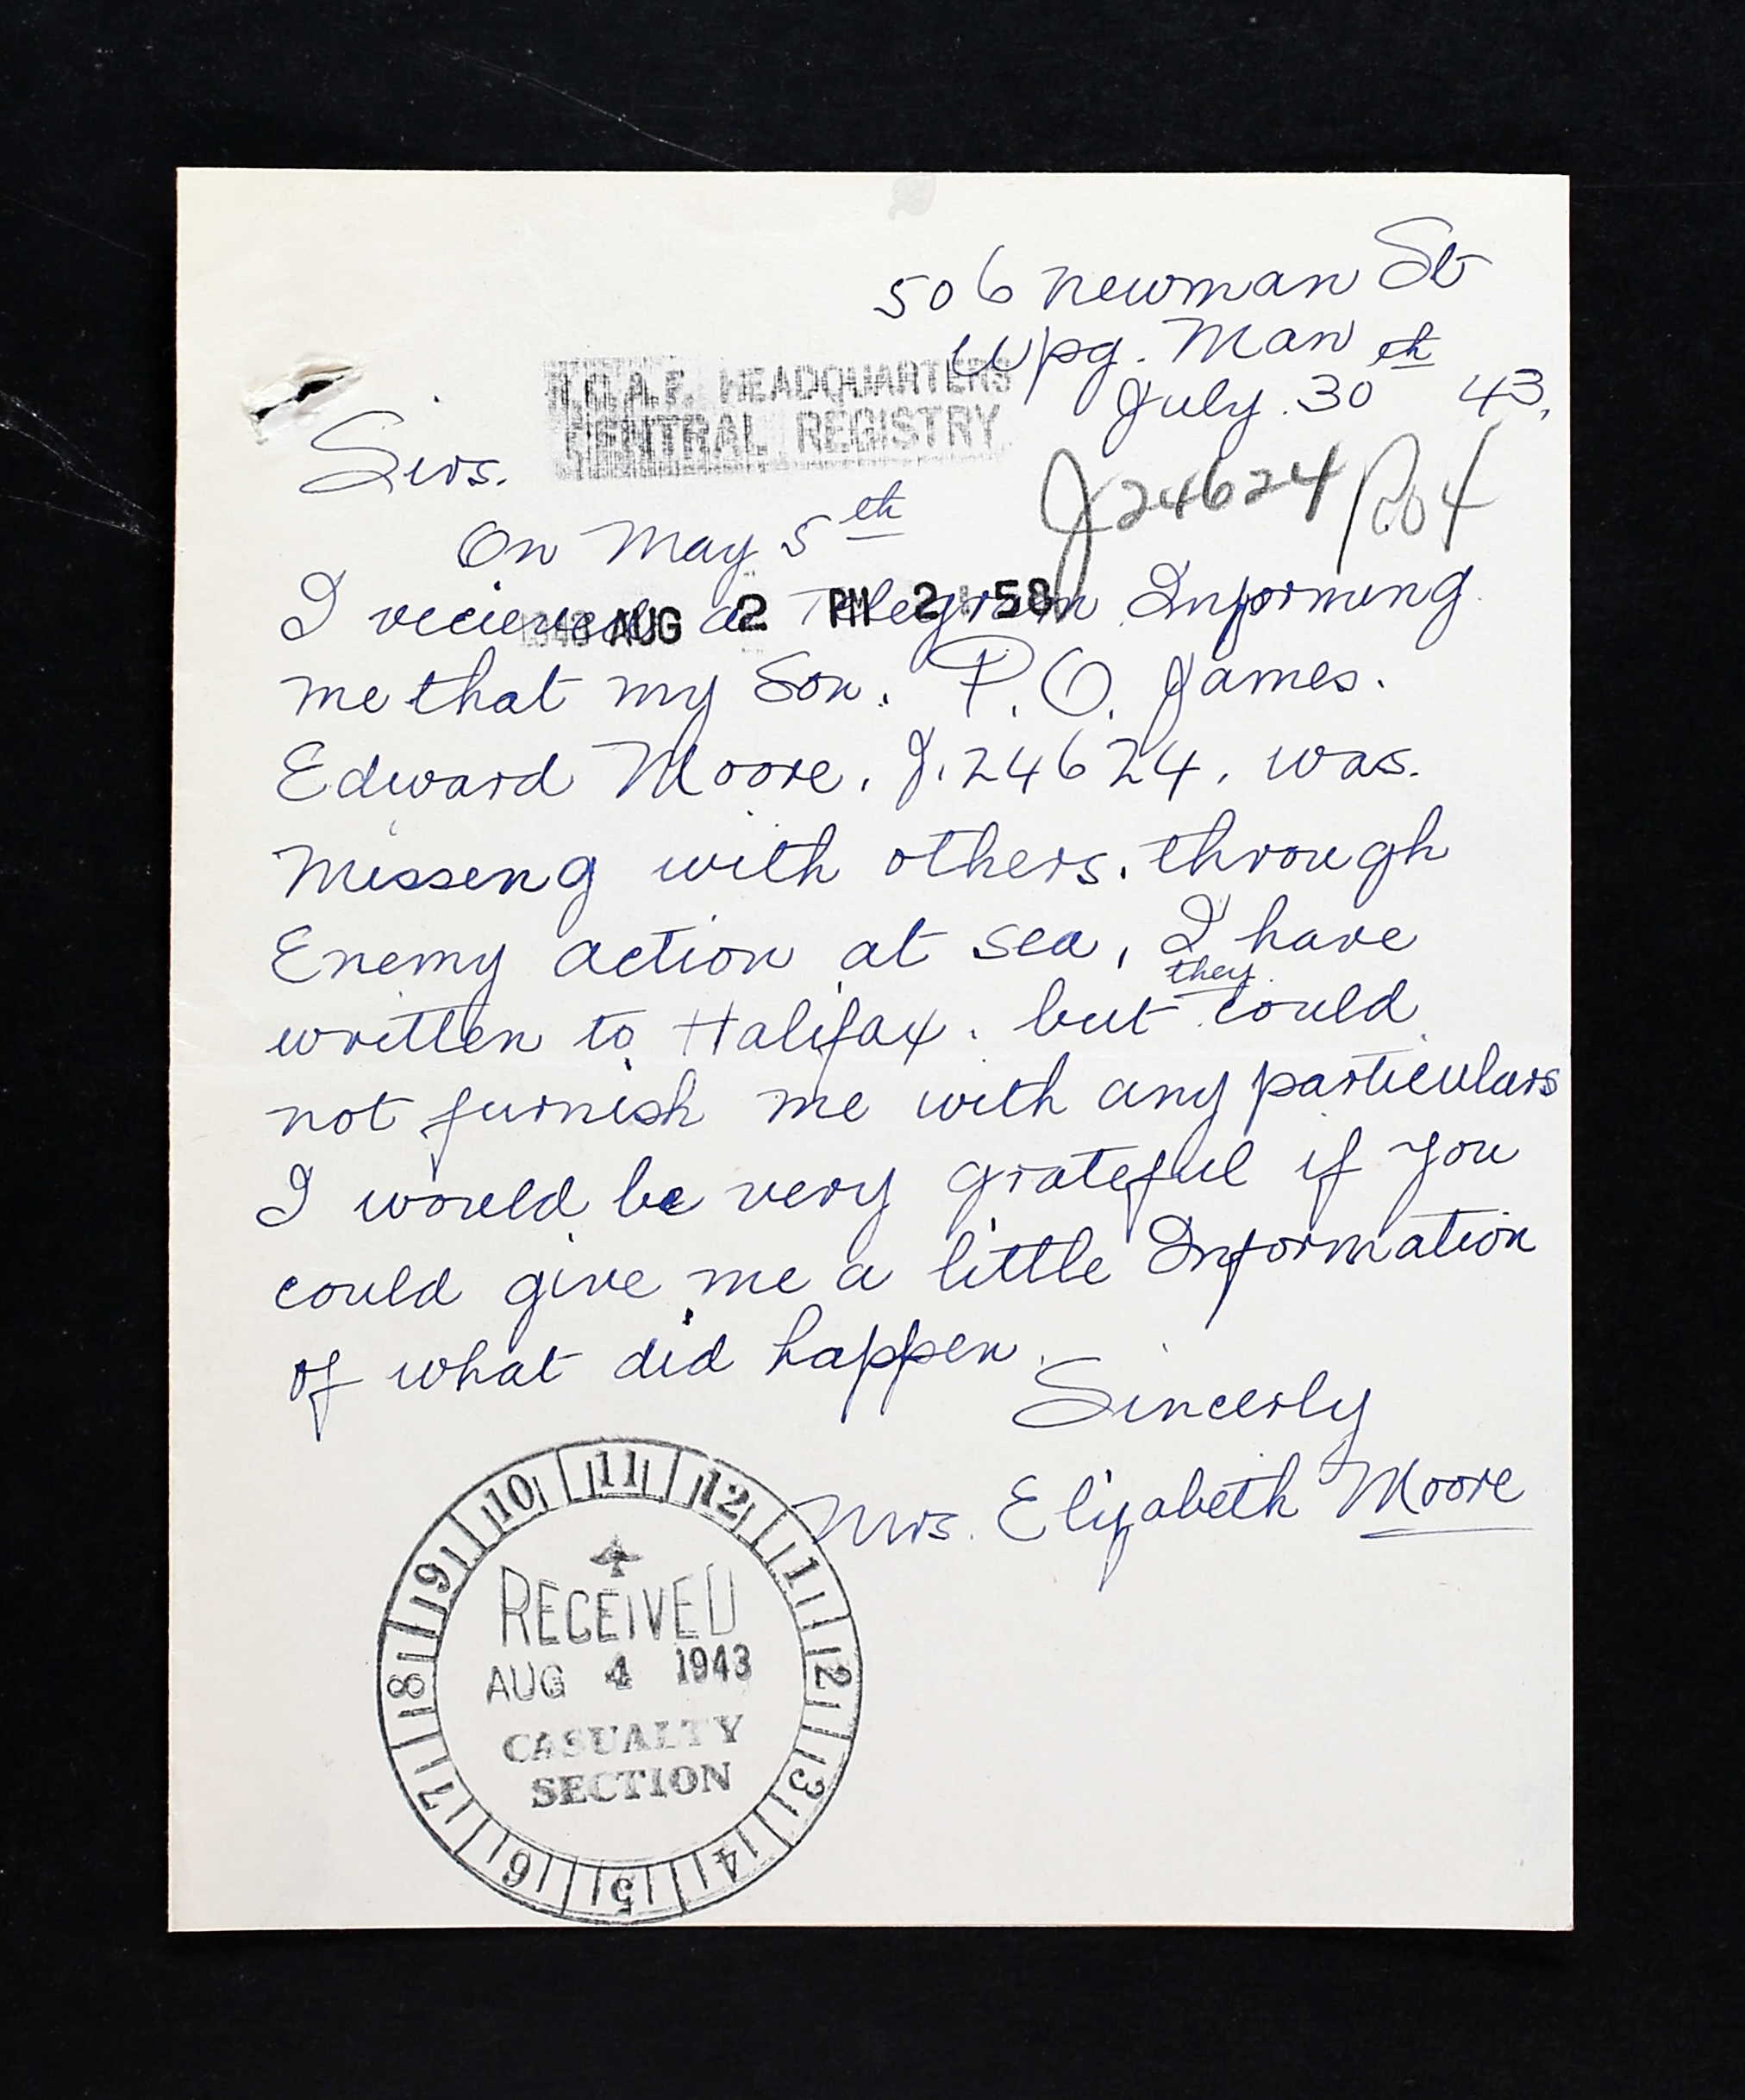 506 Newman St
Wpg. Man
July. 30th 43,
R.C.A.F. HEADQUARTERS
CENTRAL REGISTRY
Sirs.
J24624
On May 5th
I recieved a Telegram Informing
1943 AUG 2 PM 2 58
me that my Son. P.O. James.
Edward Moore. J.24624. was.
Missing with others. through
Enemy action at sea, I have
written to Halifax. but they could
not furnish me with any particulars
I would be very grateful if you
could give me a little Information
of what did happen.
Sincerly
Mrs. Elizabeth Moore
10 11 12 1 2 3 4 5 6 7 8 9
RECEIVED
AUG 4 1943
CASUALTY
SECTION